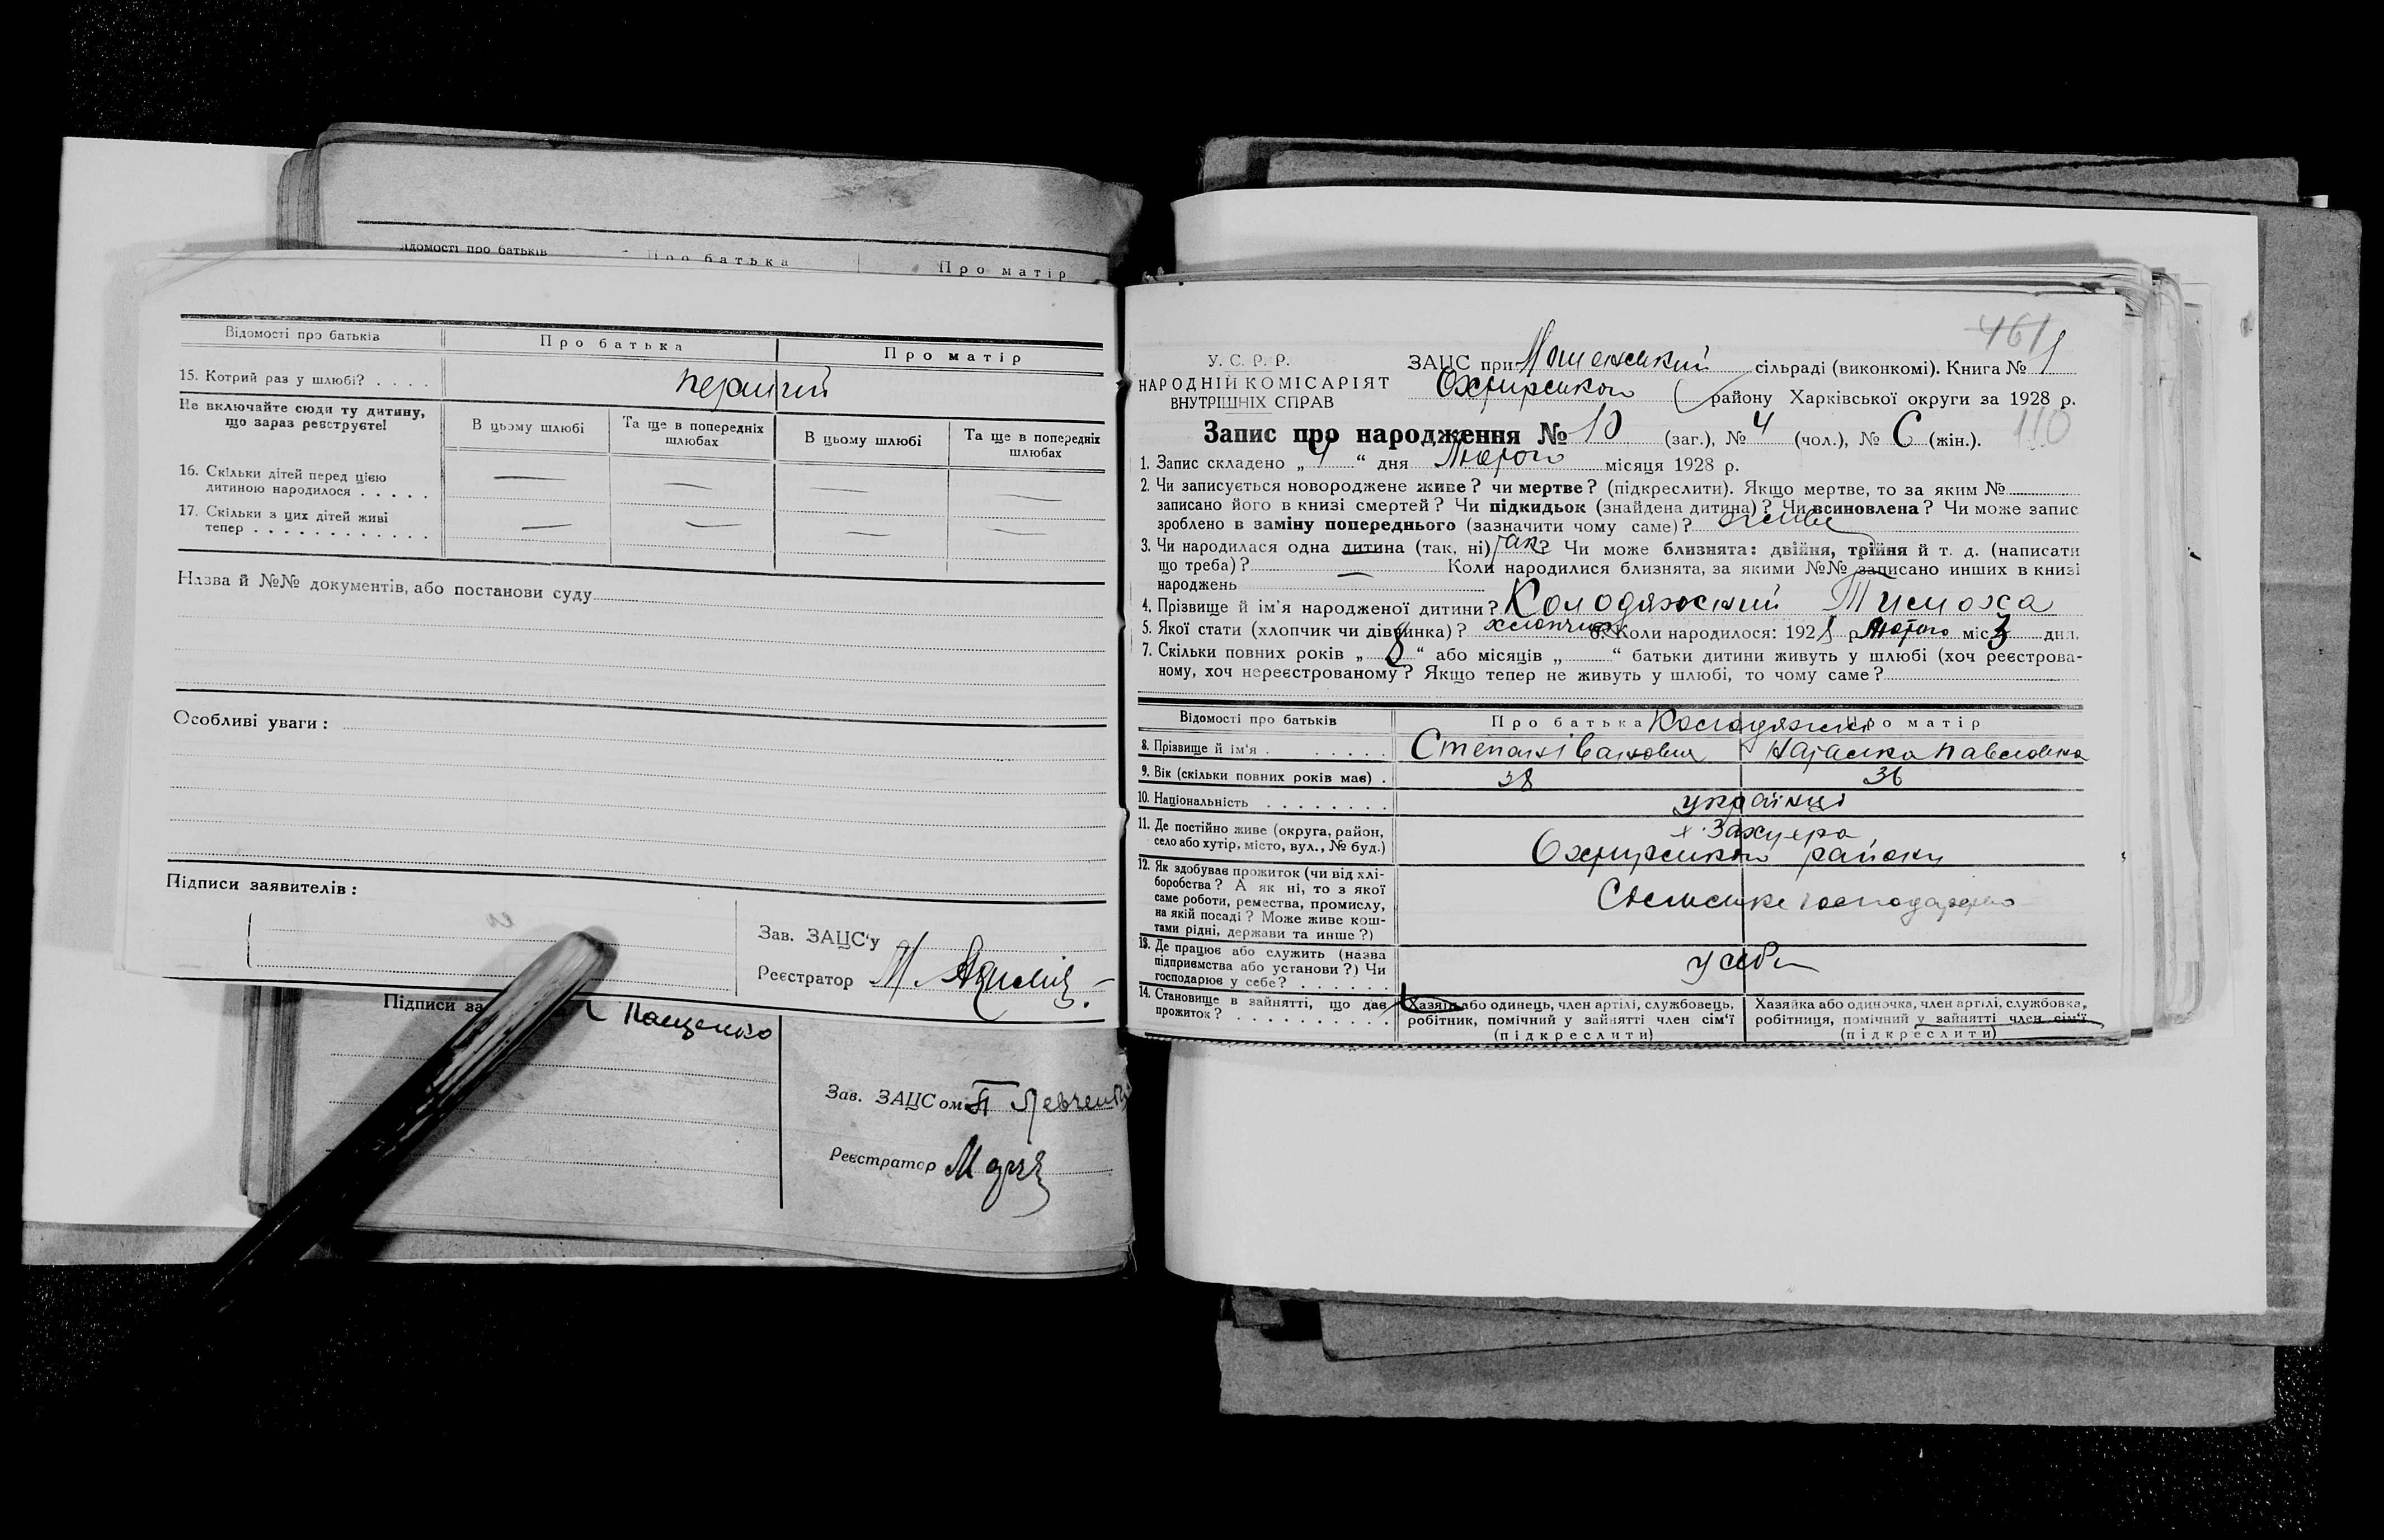 ідомості про батьків
Про батька
Про матір
Відомості про батьків
Про батька
Про матір
15. Котрий раз у шлюбі? . . . .
перший
Не включайте сюди ту дитину,
що зараз реєструєте!
В цьому шлюбі
Та ще в попередніх
шлюбах
В цьому шлюбі
Та ще в попередніх
шлюбах
16. Скільки дітей перед цією
дитиною народилося . . . . .
— — — —
17. Скільки з цих дітей живі
тепер . . . . . . . . . . . .
— — — —
Назва й №№ документів, або постанови суду
Особливі уваги:
Підписи заявителів:
Зав. ЗАЦС'у
Реєстратор М.
Підписи за
Пащенко
Зав. ЗАЦСом П Левченко
Реєстратор
461
110
У. С. Р. Р.
НАРОДНІЙ КОМІСАРІЯТ
ВНУТРІШНІХ СПРАВ
ЗАЦС при сільраді (виконкомі). Книга № 1
Охтирського району Харківської округи за 1928 р.
Запис про народження № 10 (заг.), № 4 (чол.), № 6 (жін.).
1. Запис складено „ 4 “ дня Лютого місяця 1928 р.
2. Чи записується новороджене живе? чи мертве? (підкреслити). Якщо мертве, то за яким №
записано його в книзі смертей? Чи підкидьок (знайдена дитина)? Чи всиновлена? Чи може запис
зроблено в заміну попереднього (зазначити чому саме)? живе
3. Чи народилася одна дитина (так, ні) так? Чи може близнята: двійня, трійня й т. д. (написати
що треба)? — Коли народилися близнята, за якими №№ записано инших в книзі
народжень
4. Прізвище й ім'я народженої дитини? Колодяжний Тимоха
5. Якої стати (хлопчик чи дівчинка)? хлопчик 6. Коли народилось: 1928 р. Лютого міс. 3 дня.
7. Скільки повних років „ 8 “ або місяців „ “ батьки дитини живуть у шлюбі (хоч реєстрова-
ному, хоч нереєстрованому? Якщо тепер не живуть у шлюбі, то чому саме?
Відомості про батьків
Про батька
Колодяжні
Про матір
8. Прізвище й ім'я . . . . . . .
Степан Іванович
Наталка Павловна
9. Вік (скільки повних років має) .
38
36
10. Національність . . . . . . . .
українці
11. Де постійно живе (округа, район,
село або хутір, місто, вул., № буд.)
х. Захуера
Охтирського району
12. Як здобуває прожиток (чи від хлі-
боробства? А як ні, то з якої
саме роботи, ремества, промислу,
на якій посаді? Може живе кош-
тами рідні, держави та инше?)
Сельське господарство
13. Де працює або служить (назва
підприємства або установи?) Чи
господарює у себе? . . . . . .
у себе
14. Становище в зайнятті, що дає
прожиток? . . . . . . . . . .
Хазяїн або одинець, член артілі, службовець,
робітник, помічний у зайнятті член сім'ї
(підкреслити)
Хазяйка або одиночка, член артілі, службовка,
робітниця, помічний у зайнятті член сім'ї
(підкреслити)